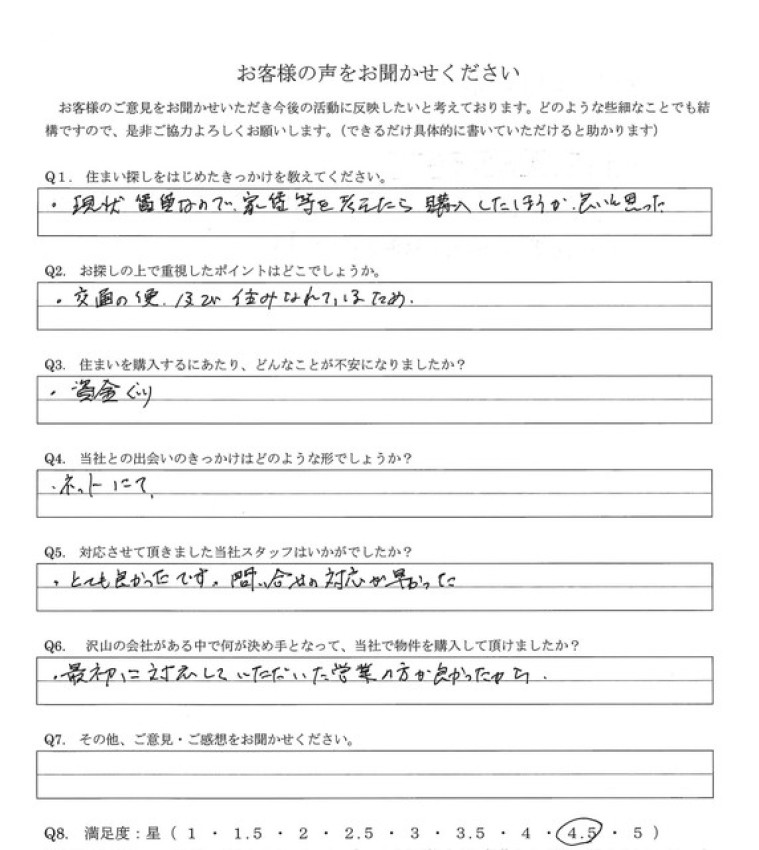 お客様の声をお聞かせください
お客様のご意見をお聞かせいただき今後の活動に反映したいと考えております。どのような些細なことでも結
構ですので、是非ご協力よろしくお願いします。（できるだけ具体的に書いていただけると助かります）
Q1. 住まい探しをはじめたきっかけを教えてください。
・現状 賃貸なので、家賃等を考えたら 購入したほうが、良いと思った
Q2. お探しの上で重視したポイントはどこでしょうか。
・交通の便、及び 住みなれているため.
Q3. 住まいを購入するにあたり、どんなことが不安になりましたか？
・資金ぐり
Q4. 当社との出会いのきっかけはどのような形でしょうか？
・ネットにて、
Q5. 対応させて頂きました当社スタッフはいかがでしたか？
・とても良かったです。問い合せの対応が早かった
Q6. 沢山の会社がある中で何が決め手となって、当社で物件を購入して頂けましたか？
・最初に対応していただいた営業の方が良かったから.
Q7. その他、ご意見・ご感想をお聞かせください。
Q8. 満足度：星（ 1 ・ 1.5 ・ 2 ・ 2.5 ・ 3 ・ 3.5 ・ 4 ・ 4.5 ・ 5 ）